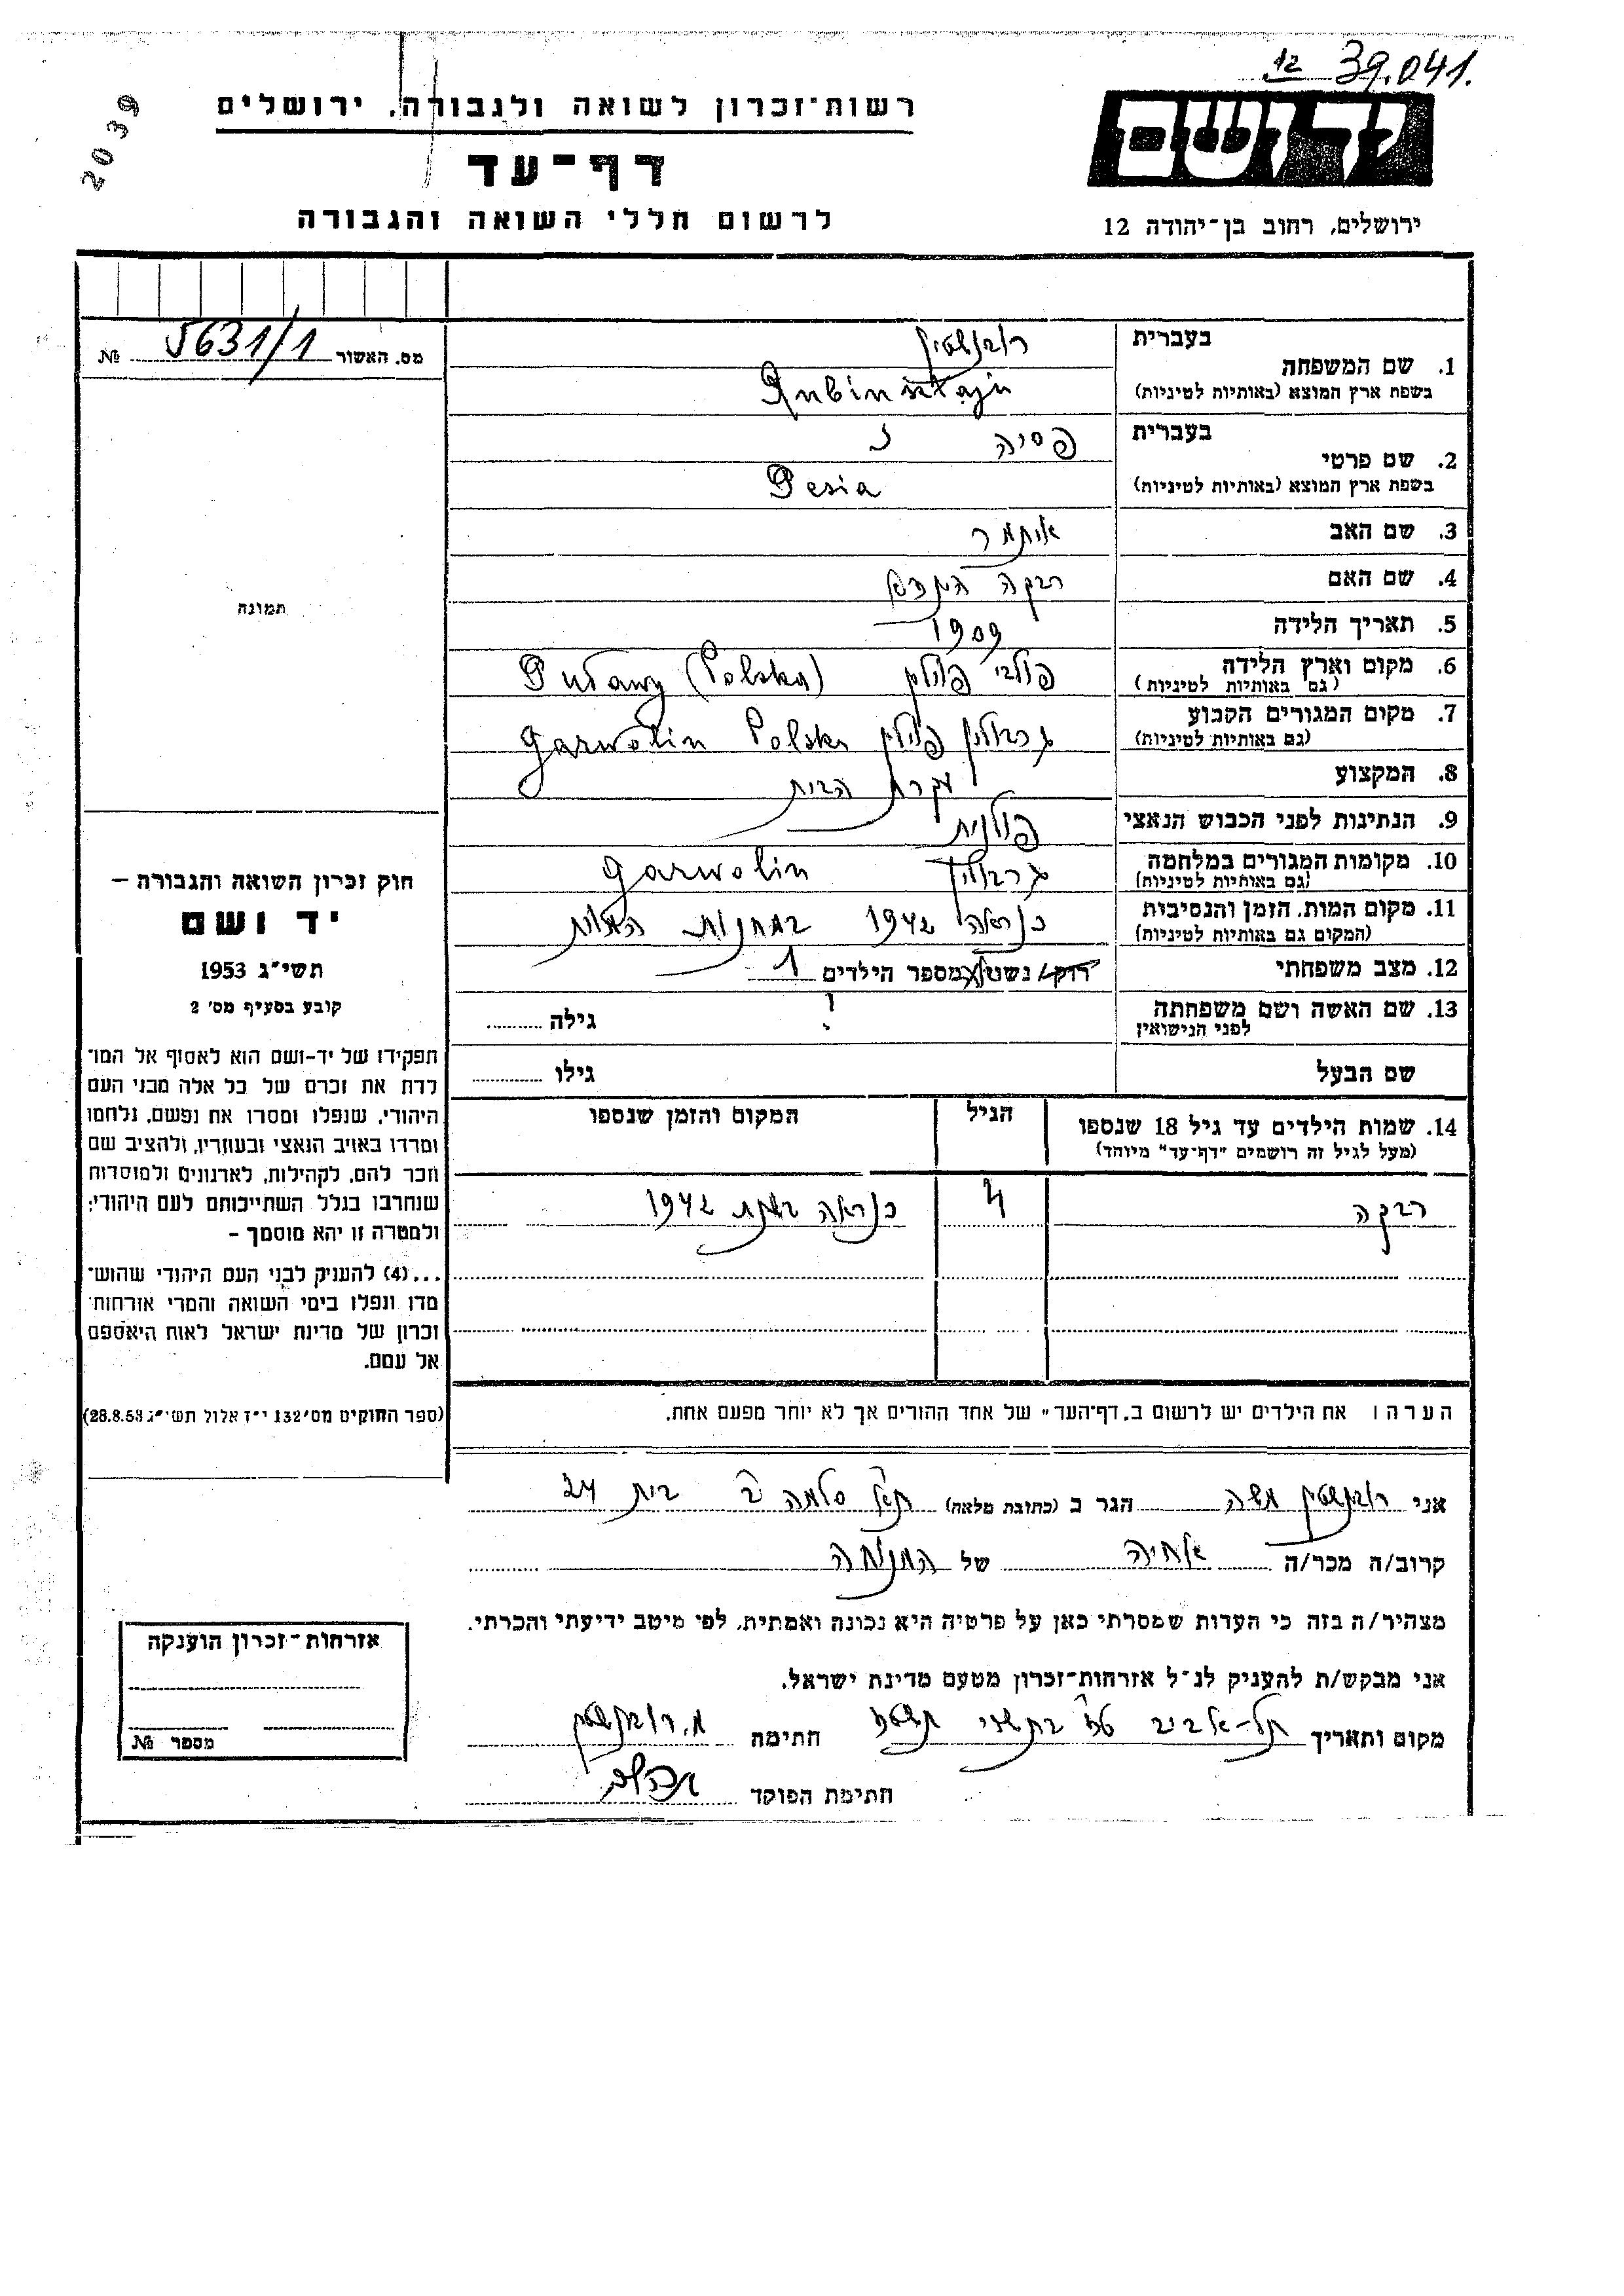 12 39.041.
2039
רשות־זכרון לשואה ולגבורה, ירושלים
דף־עד
לרשום חללי השואה והגבורה
יד ושם
ירושלים, רחוב בן־יהודה 12
מס. האשור 5631/1 №
תמונה
חוק זכרון השואה והגבורה –
יד ושם
תשי״ג 1953
קובע בסעיף מס׳ 2
תפקידו של יד-ושם הוא לאסוף אל המו־
לדת את זכרם של כל אלה מבני העם
היהודי, שנפלו ומסרו את נפשם, נלחמו
ומרדו באויב הנאצי ובעוזריו, ולהציב שם
וזכר להם, לקהילות, לארגונים ולמוסדות
שנחרבו בגלל השתייכותם לעם היהודי;
ולמטרה זו יהא מוסמך –
...(4) להעניק לבני העם היהודי שהוש־
מדו ונפלו בימי השואה והמרי אזרחות־
זכרון של מדינת ישראל לאות היאספם
אל עמם.
(ספר החוקים מס׳ 132 י״ז אלול תשי״ג 28.8.53)
1. שם המשפחה בעברית רובינשטיין
בשפת ארץ המוצא (באותיות לטיניות) Rubinsztajn
2. שם פרטי בעברית פסיה נ
בשפת ארץ המוצא (באותיות לטיניות) Pesia
3. שם האב איתמר
4. שם האם רבקה
5. תאריך הלידה 1909
6. מקום וארץ הלידה (גם באותיות לטיניות) פולבי פולין Puławy (Polska)
7. מקום המגורים הקבוע (גם באותיות לטיניות) גרבולין פולין Garwolin Polska
8. המקצוע עקרת הבית
9. הנתינות לפני הכבוש הנאצי פולנית
10. מקומות המגורים במלחמה (גם באותיות לטיניות) גרבולין Garwolin
11. מקום המות, הזמן והנסיבות (המקום גם באותיות לטיניות) כנראה 1942 במחנות
12. מצב משפחתי רווק/ נשוי/אה מספר הילדים 1
13. שם האשה ושם משפחתה לפני הנישואין ? גילה
שם הבעל גילו
14. שמות הילדים עד גיל 18 שנספו הגיל המקום והזמן שנספו
(מעל לגיל זה רושמים ״דף־עד״ מיוחד)
רבקה 4 כנראה בשנת 1942
הערה: את הילדים יש לרשום ב„דף־העד״ של אחד ההורים אך לא יותר מפעם אחת.
אני רובינשטיין משה הגר ב (כתובת מלאה) ת״א סלמה ב׳ בית 24
קרוב/ה מכר/ה אחיה של המנוחה
מצהיר/ה בזה כי העדות שמסרתי כאן על פרטיה היא נכונה ואמתית, לפי מיטב ידיעתי והכרתי.
אני מבקש/ת להעניק לנ״ל אזרחות־זכרון מטעם מדינת ישראל.
מקום ותאריך תל-אביב בתשרי חתימה מ. רובינשטיין
חתימת הפוקד
אזרחות־זכרון הוענקה
מספר №